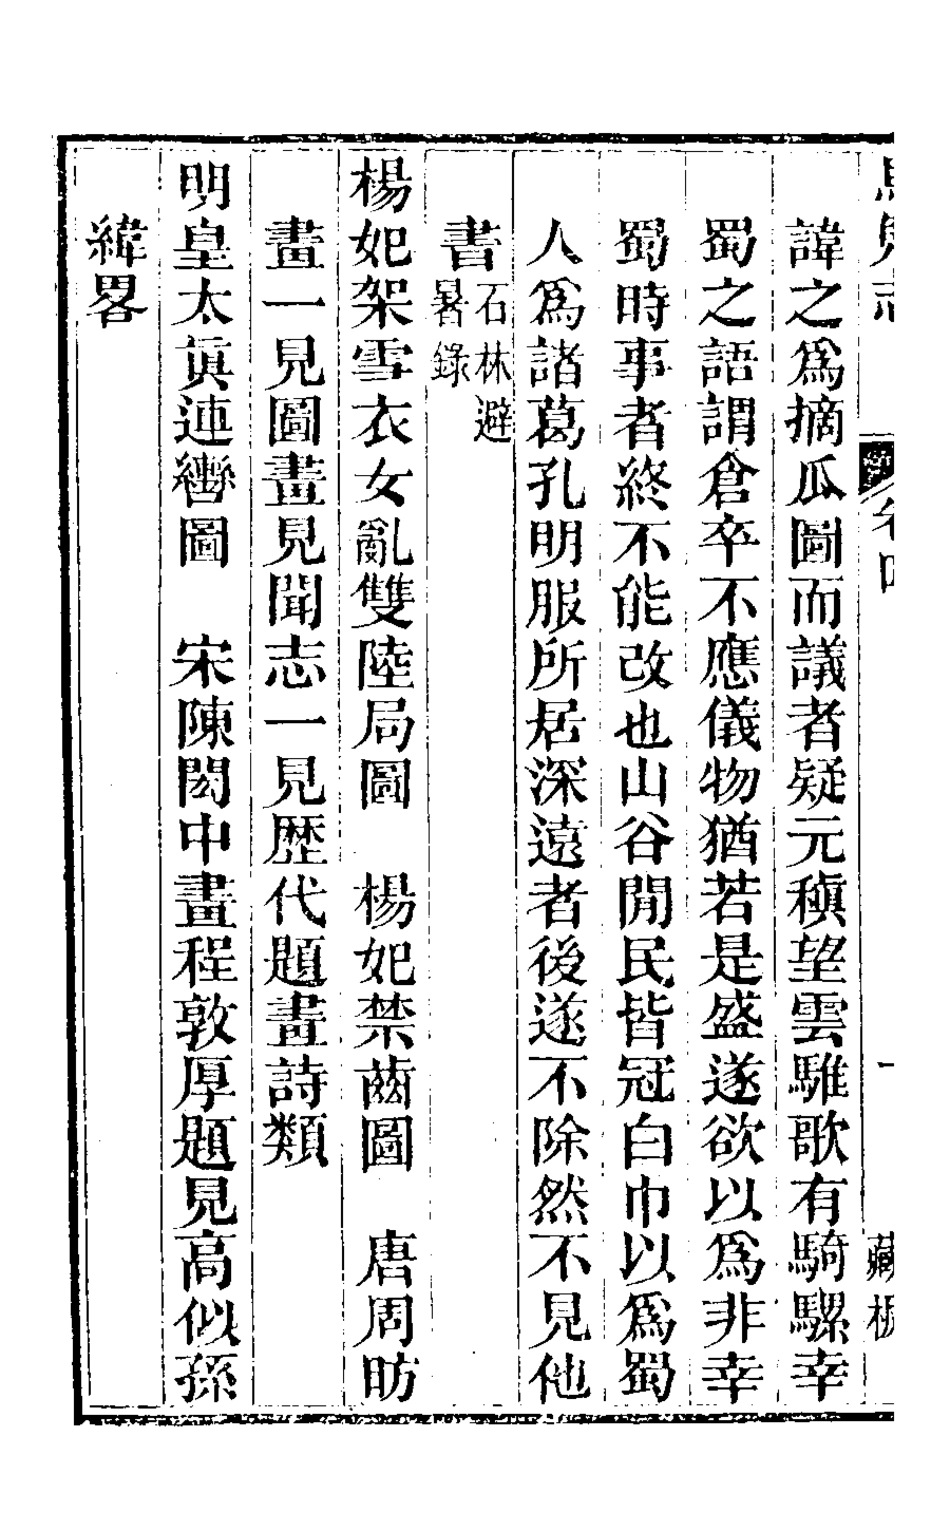 諱之爲摘瓜圖而議者疑元稹望雲騅歌有騎騾幸
蜀之語謂倉卒不應儀物猶若是盛遂欲以爲非幸
蜀時事者終不能改也山谷閒民皆冠白巾以爲蜀
人爲諸葛孔明服所居深遠者後遂不除然不見他
書石林避暑錄
楊妃架雪衣女亂雙陸局圖　楊妃禁齒圖　唐周昉
畫一見圖畫見聞志一見歴代題畫詩類
明皇太眞連轡圖　宋陳閎中畫程敦厚題見高似孫
緯畧